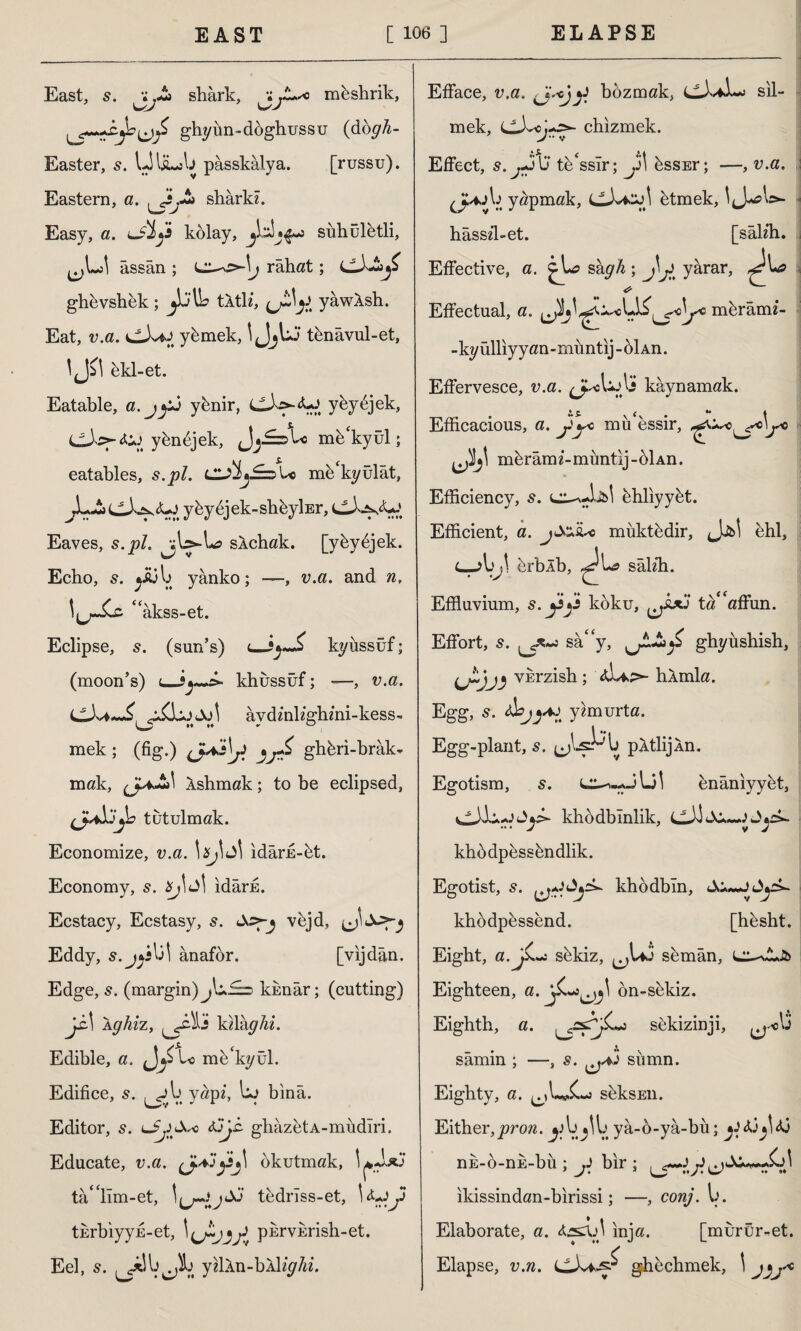 EAST [ 106 ] ELAPSE
East, s. شرق shàrk, مشرق mèshrik,
گون طوغوسى ghyùn-dòghussu (dògh-
Easter, s. پاسقاليا pàsskàlya. [russu).
Eastern, a. شرقى shàrkī.
Easy, a. قولاى kòlay, سهولتلى sùhūlètli,
آسان āssān ; راحت rāhat ; گوشك
ghèvshèk ; طاتلى tAtli, يواش yàwAsh.
Eat, v.a. يمك yèmek, تناول ا tènāvul-et,
اكل ا èkl-et.
Eatable, a. ينور yènir, ييه جك yèyéjek,
ينه جك yènéjek, مأكول mè‘kyūl ;
eatables, s.pl. مأكولات mè‘kyūlāt,
ييه جك شيلر yèyéjek-shèylEr, ييه جك
Eaves, s.pl. صاچاق sAchak. [yèyéjek.
Echo, s. يانقو yànko ; —, v.a. and n.
عكس ا “àkss-et.
Eclipse, s. (sun’s) كسوف kyùssūf ;
(moon’s) خسوف khùssūf ; —, v.a.
آيدينلغنى كسمك àydinlighini-kess-
mek ; (fig.) گرى براقمق ghèri-bràk-
mak, آشمق Ashmak ; to be eclipsed,
طوتولمق tùtulmak.
Economize, v.a. اداره ا ìdārE-èt.
Economy, s. اداره ìdārE.
Ecstacy, Ecstasy, s. وجد vèjd, وجدان
Eddy, s. انافور ànafòr. [vìjdān.
Edge, s. (margin) كنار kEnār ; (cutting)
آغز Aghiz, قلاغى kìlàghi.
Edible, a. مأكول mè‘kyūl.
Edifice, s. ياپى yàpi, بنا bìnā.
Editor, s. غزته مديرى ghàzètA-mùdīri.
Educate, v.a. اوقوتمق òkutmak, تعليم ا
tà“līm-et, تدريس ا tèdrīss-et, تربيه ا
tErbìyyE-et, پرورش ا pErvErish-et.
Eel, s. ييلان بالغى yìlAn-bAlighi.
Efface, v.a. بوزمق bòzmak, سلمك sìl-
mek, چيزمك chìzmek.
Effect, s. تأثير tè‘ssīr ; اثر èssEr ; —, v.a.
ياپمق yàpmak, ايتمك ètmek, حاصل ا
hāssil-et. [sālih.
Effective, a. صاغ sàgh ; يرار yàrar, صالح
Effectual, a. مرامى كلياً منتج اولان mèrāmi-
-kyùllìyyan-mùntìj-òlAn.
Effervesce, v.a. قاينامق kàynamak.
Efficacious, a. مؤثر mù‘èssir, مرامى منتج
اولان mèrāmi-mùntìj-òlAn.
Efficiency, s. اهليت èhlìyyèt.
Efficient, a. مقتدر mùktèdir, اهل èhl,
ارباب èrbAb, صالح sālih.
Effluvium, s. قوقو kòku, تعفن tà“affun.
Effort, s. سعى sà“y, گوشش ghyùshish,
ورزش vErzish ; حمله hAmla.
Egg, s. يمورطه yìmurta.
Egg-plant, s. پاتلجان pAtlijAn.
Egotism, s. انانيت ènānìyyèt,
خودبينلك khòdbīnlik, خودپسندلك
khòdpèssèndlik.
Egotist, s. خودبين khòdbīn, خودپسند
khòdpèssend. [hèsht.
Eight, a. سكز sèkiz, ثمان sèmān, هشت
Eighteen, a. اون سكز òn-sèkiz.
Eighth, a. سكزنجى sèkizinji, ثامن
sāmin ; —, s. ثمن sùmn.
Eighty, a. سكسان sèksEn.
Either, pron. يا او يا بو yà-ò-yà-bù ; نه او نه بو
nE-ò-nE-bù ; بر bìr ; ايكيسندن بريسى
ìkissindan-bìrissi ; —, conj. يا.
Elaborate, a. اينجه ìnja. [mùrūr-et.
Elapse, v.n. گچمك ghèchmek, مرور ا